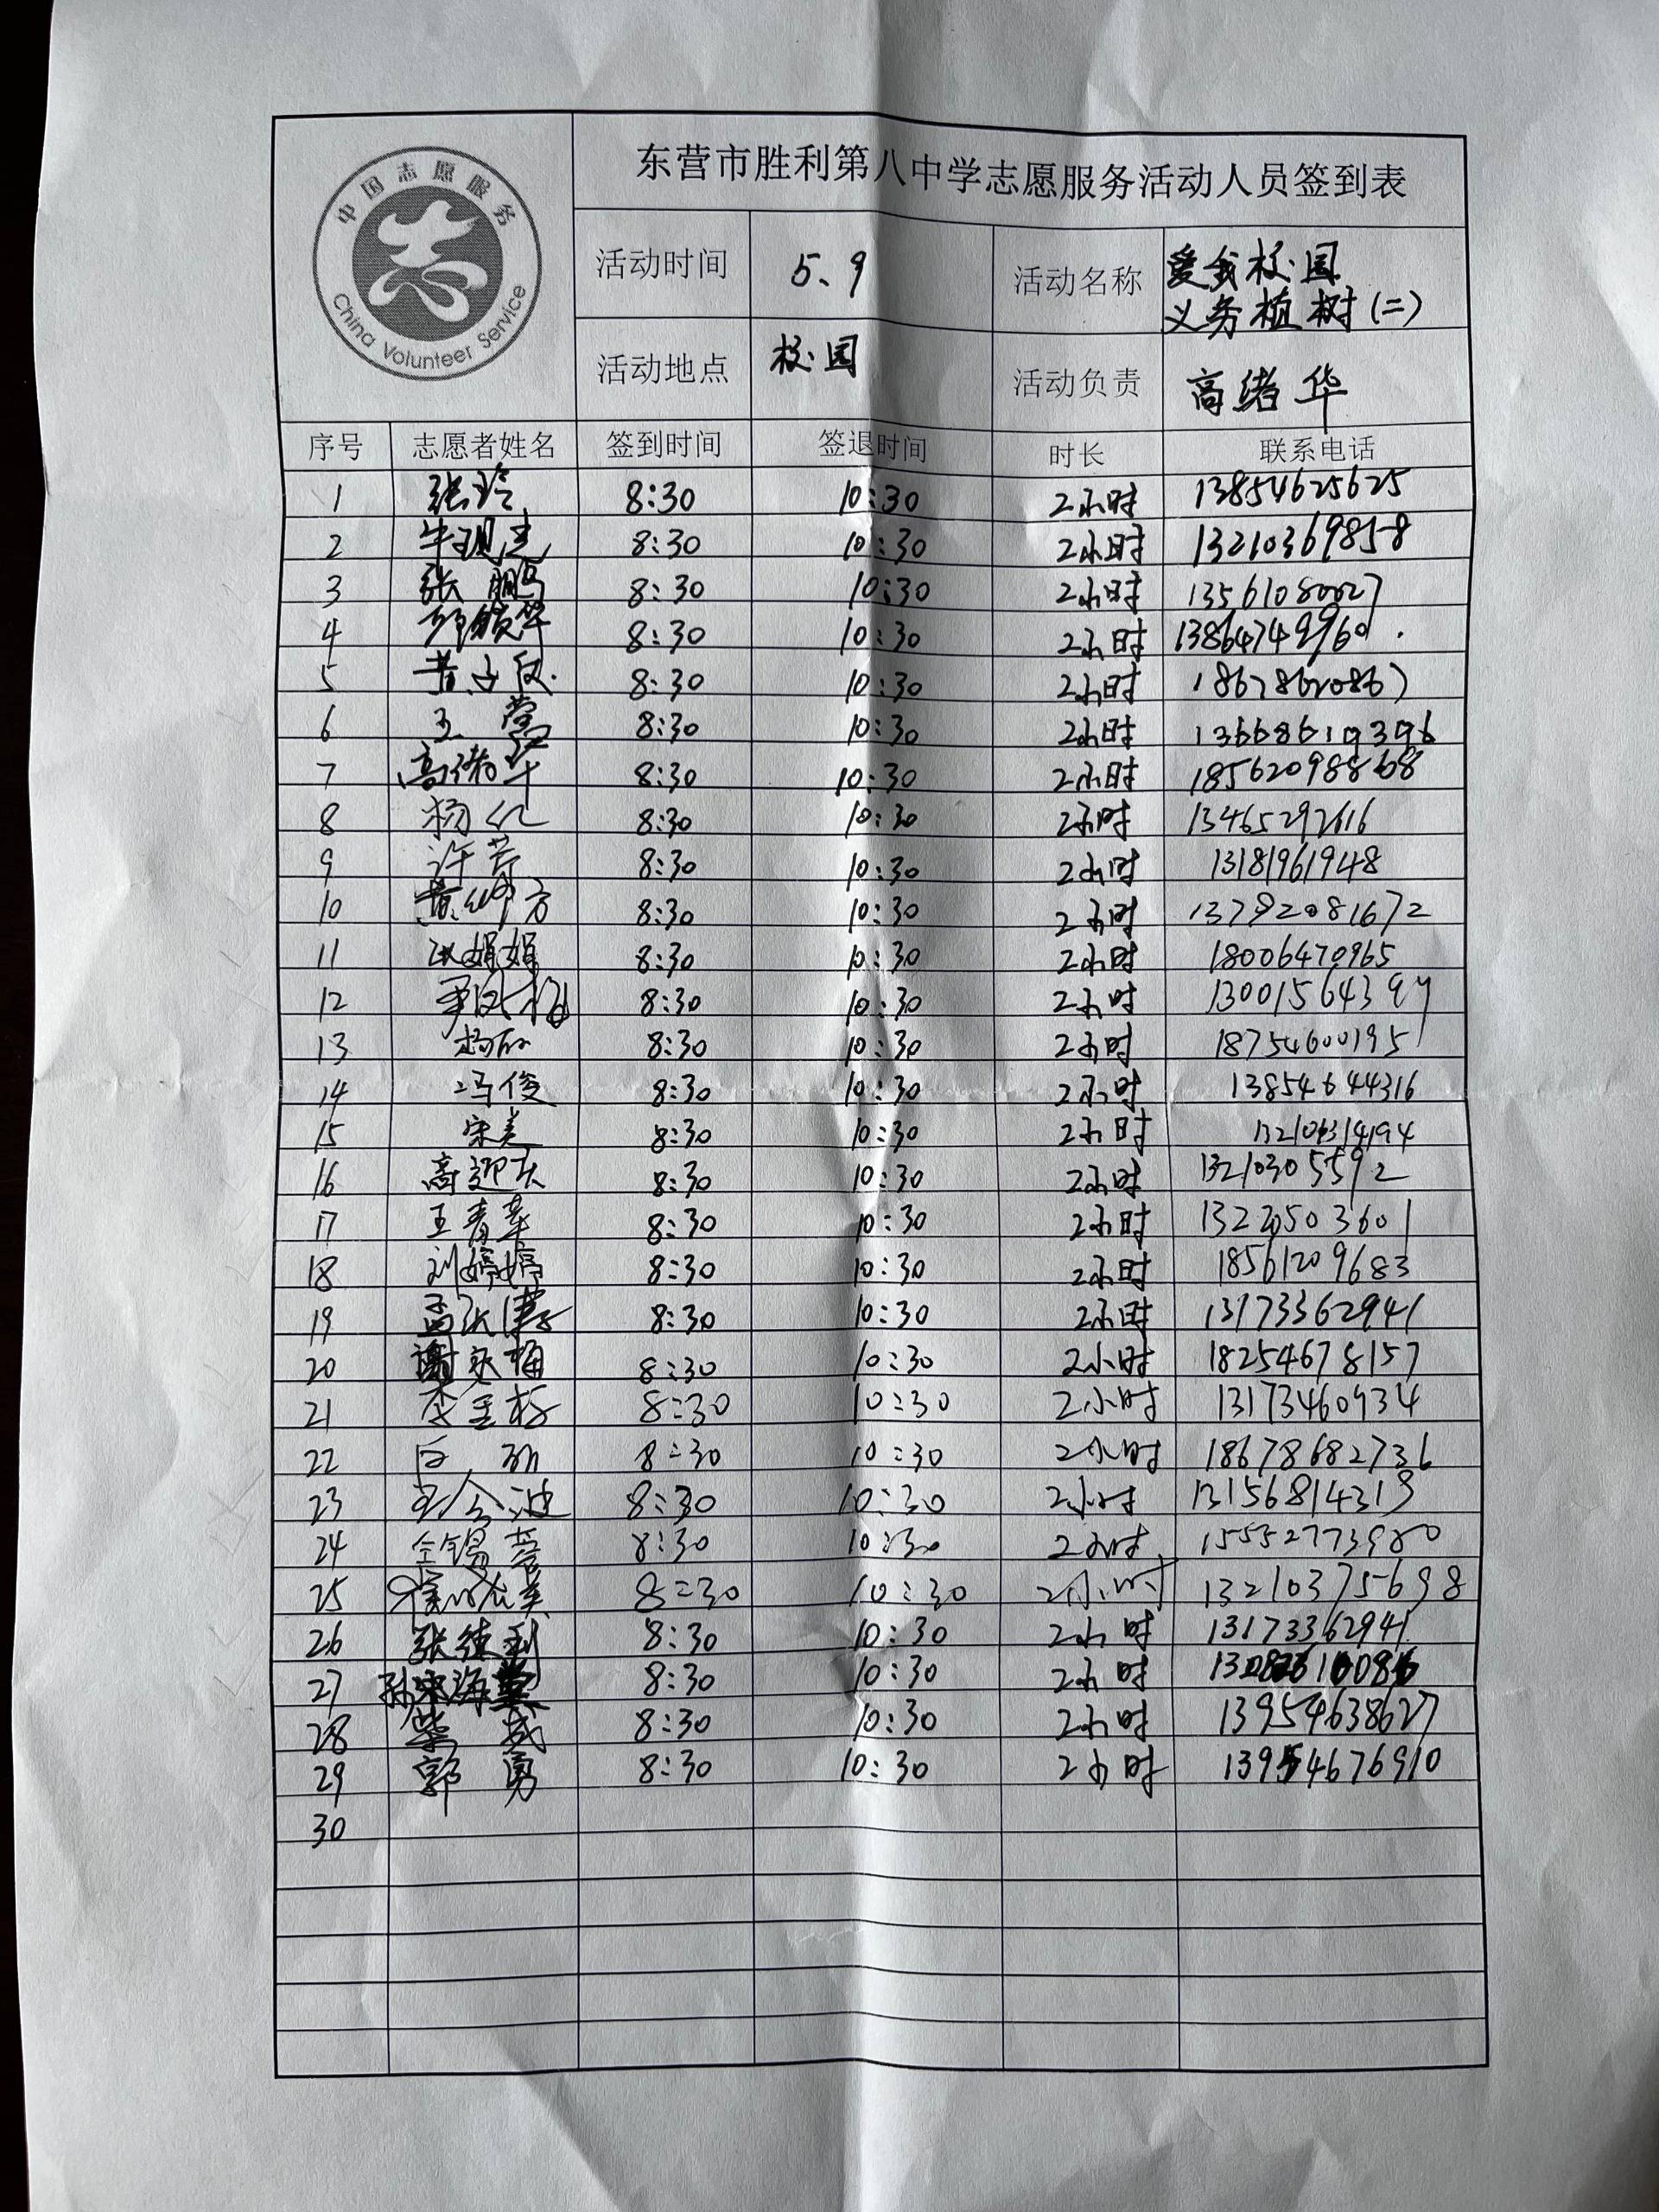 中国志愿服务
China Volunteer Service
东营市胜利第八中学志愿服务活动人员签到表
活动时间 5、9 活动名称 爱我校园
义务植树(二)
活动地点 校园 活动负责 高绪华
序号 志愿者姓名 签到时间 签退时间 时长 联系电话
1 张玲 8:30 10:30 2小时 13854625625
2 8:30 10:30 2小时 13210369858
3 张鹏 8:30 10:30 2小时 13561080027
4 8:30 10:30 2小时
5 8:30 10:30 2小时
6 王莺 8:30 10:30 2小时 13668619396
7 高绪华 8:30 10:30 2小时 18562098868
8 8:30 10:30 2小时 13465292616
9 许芹 8:30 10:30 2小时 13181961948
10 8:30 10:30 2小时 13792081672
11 8:30 10:30 2小时 18006470965
12 8:30 10:30 2小时
13 8:30 10:30 2小时 18754600195
14 冯俊 8:30 10:30 2小时 13854644316
15 宋美 8:30 10:30 2小时
16 8:30 10:30 2小时 13210305592
17 8:30 10:30 2小时
18 刘婷婷 8:30 10:30 2小时 18561209683
19 8:30 10:30 2小时 13173362941
20 8:30 10:30 2小时 18254678157
21 8:30 10:30 2小时 13173460934
22 8:30 10:30 2小时 18678682736
23 8:30 10:30 2小时 13156814319
24 8:30 10:30 2小时 15552773980
25 8:30 10:30 2小时 13210375698
26 8:30 10:30 2小时 13173362941
27 8:30 10:30 2小时
28 8:30 10:30 2小时 13954638627
29 郭勇 8:30 10:30 2小时 13954676910
30